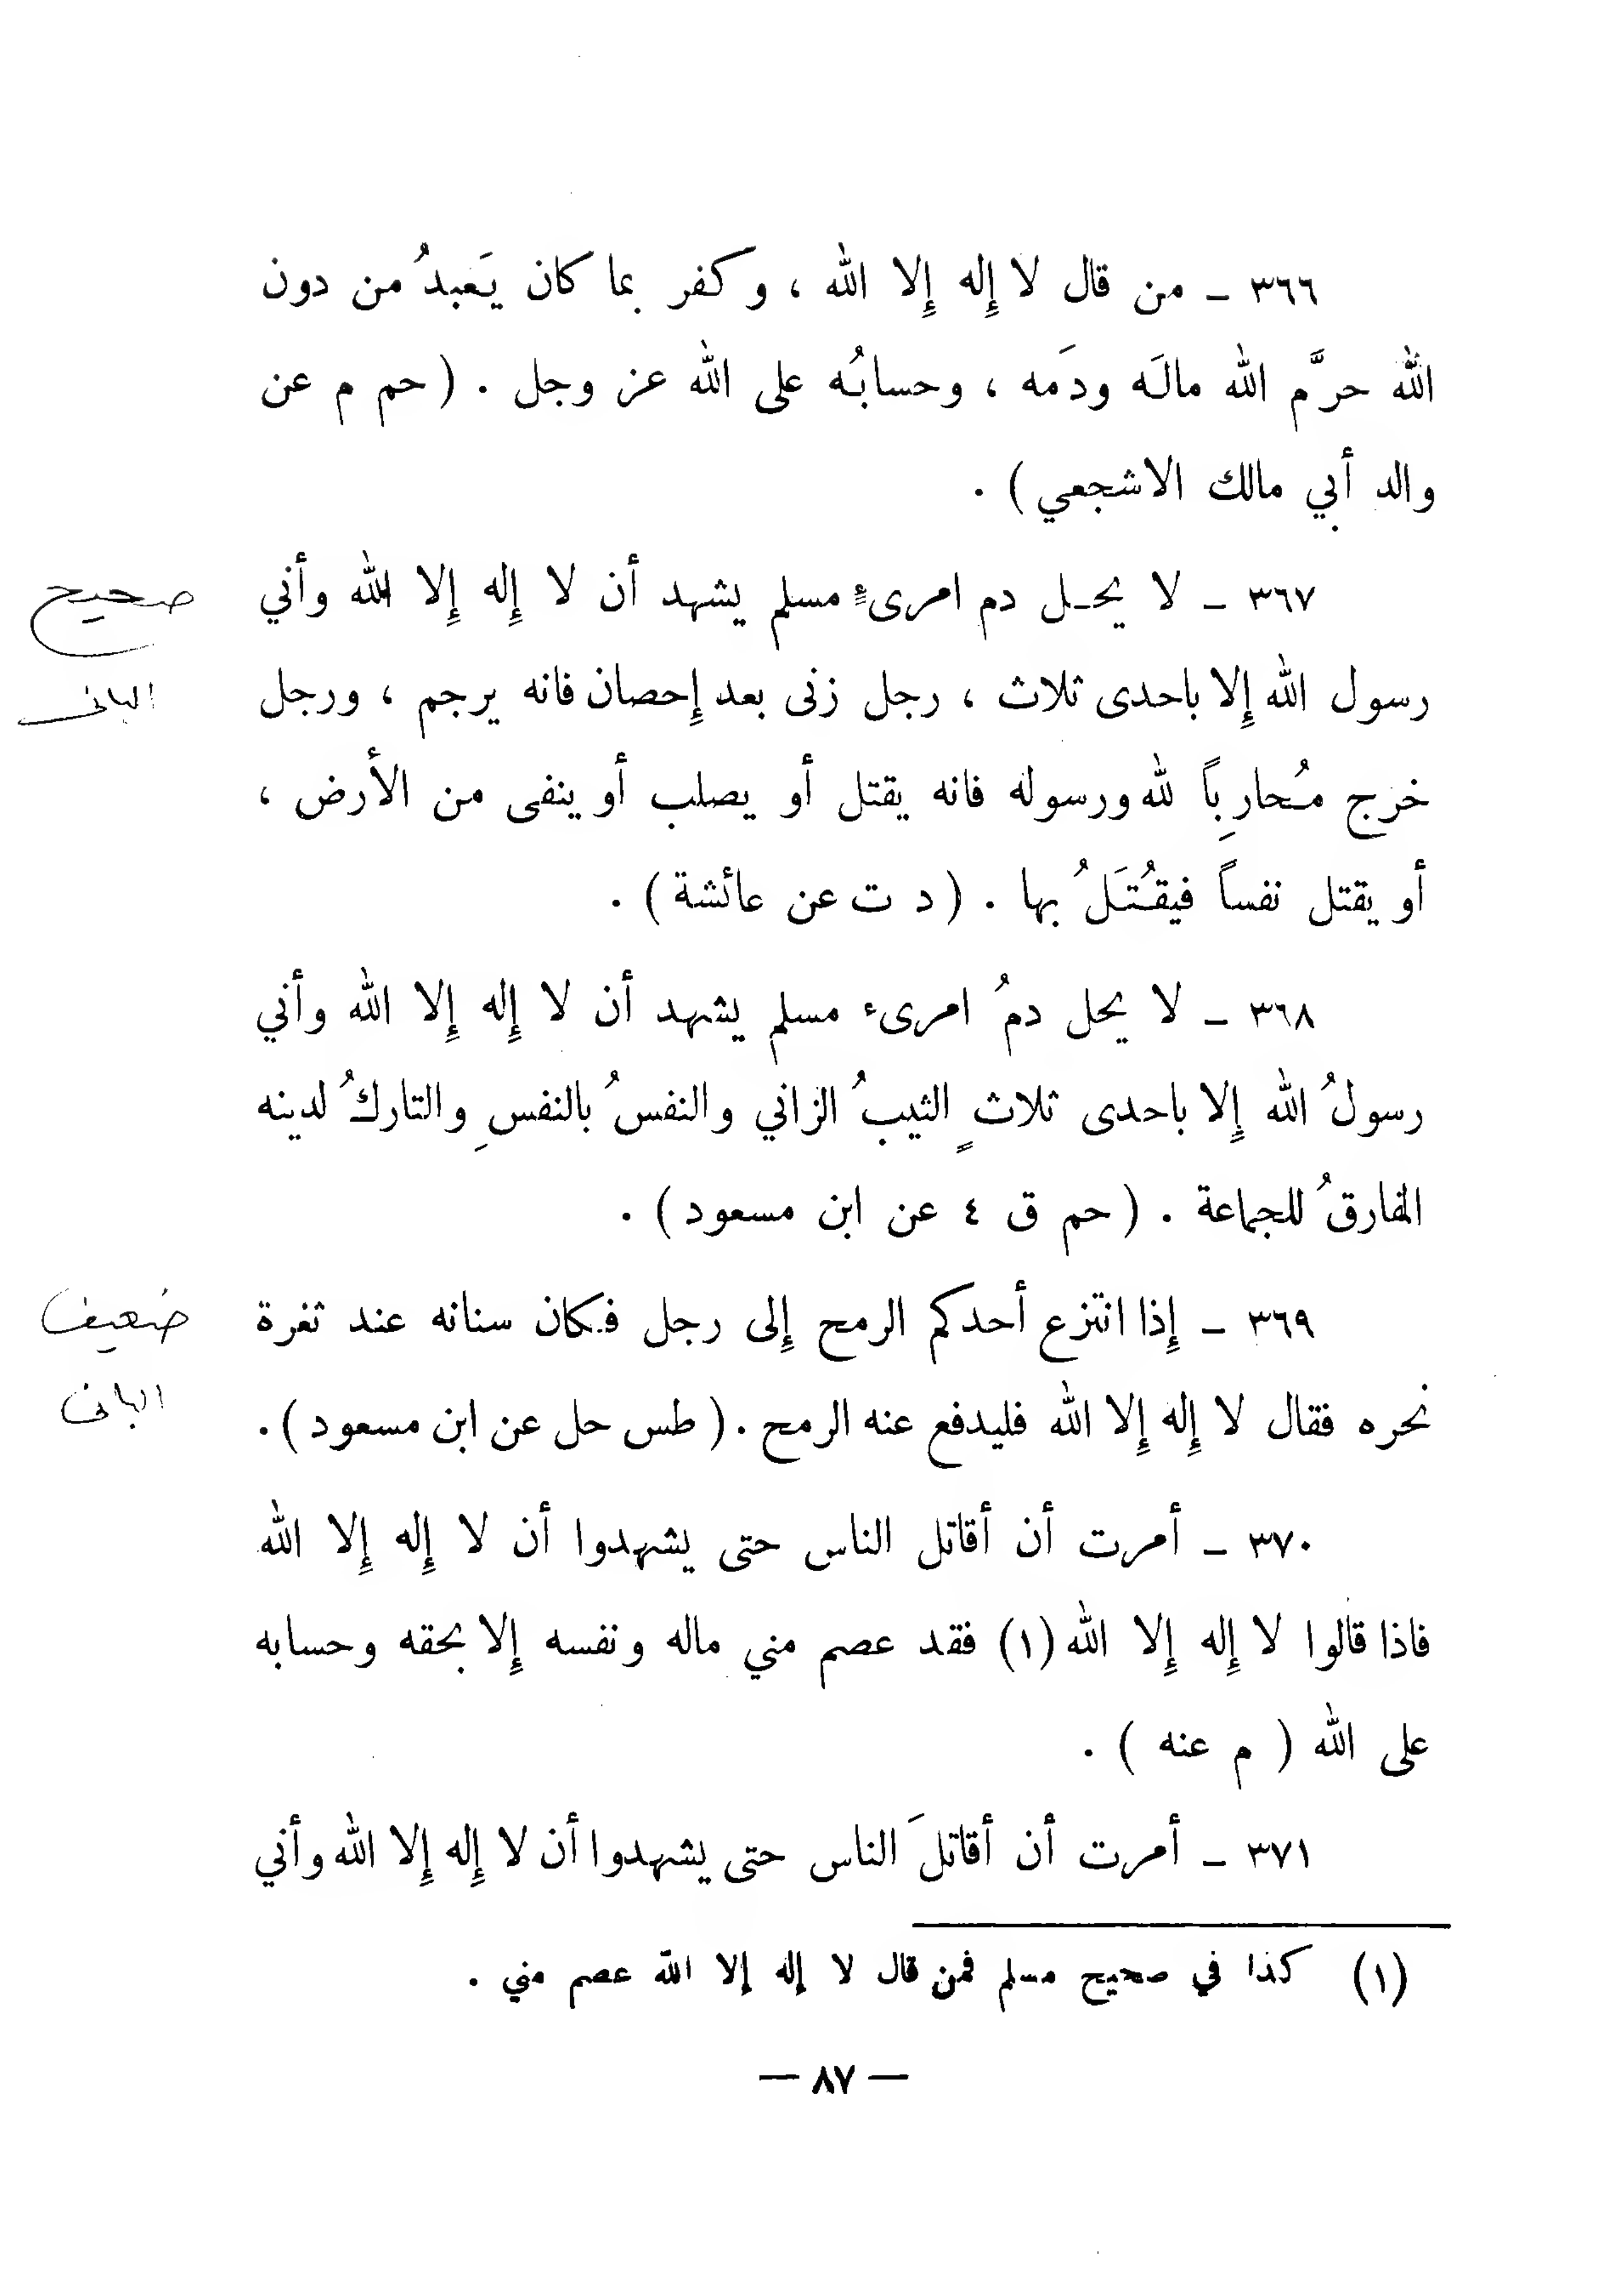 ٣٦٦ - من قال لا إِله إِلا الله ، وكفر بما كان يَعبدُ من دون
الله حرَّم الله مالَه ودَمَه ، وحسابُه على الله عز وجل . ( حم م عن
والد أبي مالك الاشجعي ) .
٣٦٧ - لا يحـل دم امرىءٍ مسلم يشهد أن لا إِله إِلا الله وأني
صحيح
رسول الله إِلا باحدى ثلاث ، رجل زنى بعد إِحصان فانه يرجم ، ورجل
البانى
خرج مُحارِباً لله ورسوله فانه يقتل أو يصلب أو ينفى من الأرض ،
أو يقتل نفساً فيقُتَلُ بها . ( د ت عن عائشة ) .
٣٦٨ - لا يحل دمُ امرىء مسلم يشهد أن لا إِله إِلا الله وأني
رسولُ الله إِلا باحدى ثلاثٍ الثيبُ الزاني والنفسُ بالنفسِ والتاركُ لدينه
المفارقُ للجماعة . ( حم ق ٤ عن ابن مسعود ) .
٣٦٩ - إِذا انتزع أحدكم الرمح إِلى رجل فكان سنانه عند ثغرة
ضعيف
نحره فقال لا إِله إِلا الله فليدفع عنه الرمح . ( طس حل عن ابن مسعود ) .
البانى
٣٧٠ - أمرت أن أقاتل الناس حتى يشهدوا أن لا إِله إِلا الله
فاذا قالوا لا إِله إِلا الله (١) فقد عصم مني ماله ونفسه إِلا بحقه وحسابه
على الله ( م عنه ) .
٣٧١ - أمرت أن أقاتلَ الناس حتى يشهدوا أن لا إِله إِلا الله وأني
(١) كذا في صحيح مسلم فمن قال لا إله إلا الله عصم مني .
— ٨٧ —